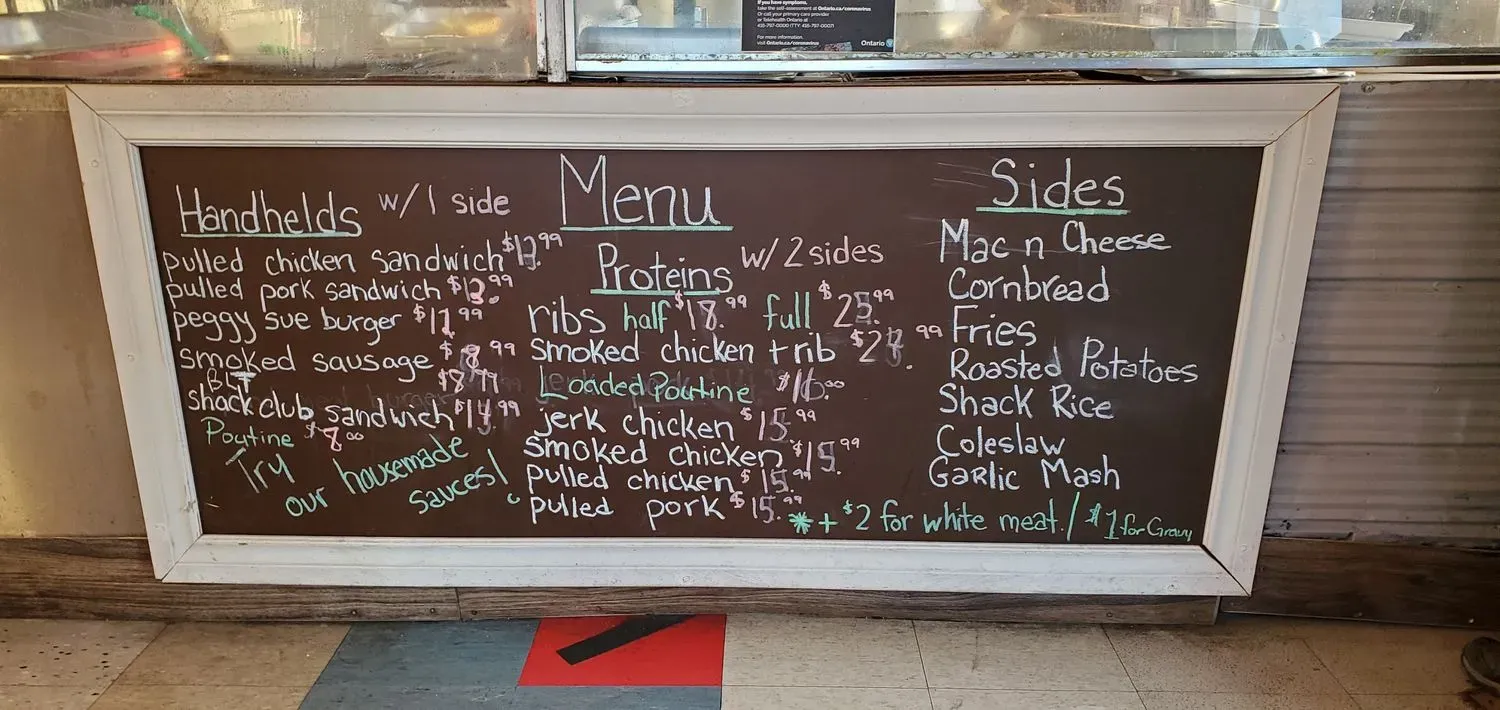 If you have symptoms,
take the self-assessment at Ontario.ca/coronavirus
Or call your primary care provider
or Telehealth Ontario at
416-797-0000 (TTY: 416-797-0007)
For more information,
visit Ontario.ca/coronavirus
Ontario
Menu
Handhelds w/ 1 side
pulled chicken sandwich $13.99
pulled pork sandwich $13.99
peggy sue burger $11.99
smoked sausage $8.99
BLT $8.99
shack club sandwich $14.99
Poutine $8.00
Try
our housemade
sauces!
Proteins w/ 2 sides
ribs half $18.99 full $25.99
smoked chicken + rib $23.99
Loaded Poutine $16.00
jerk chicken $15.99
smoked chicken $15.99
pulled chicken $15.99
pulled pork $15.99
Sides
Mac n Cheese
Cornbread
Fries
Roasted Potatoes
Shack Rice
Coleslaw
Garlic Mash
*+ $2 for white meat. / $1 for Gravy